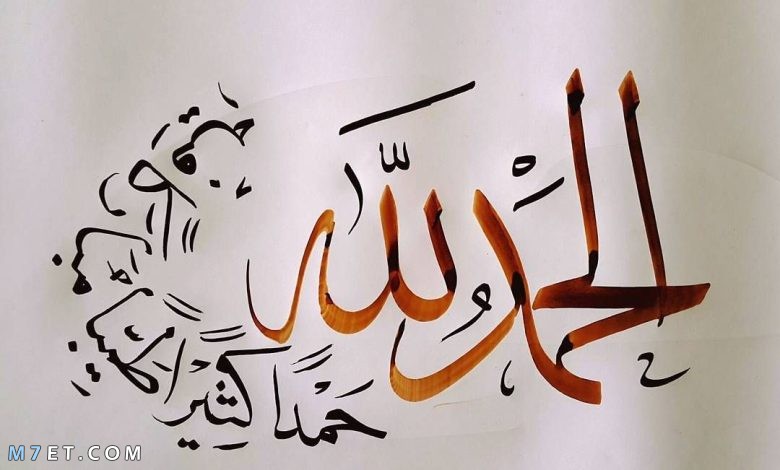 الحمد لله
حَمْدًا كَثِيْرًا طيّبًا مباركًا فيه
M7ET.COM